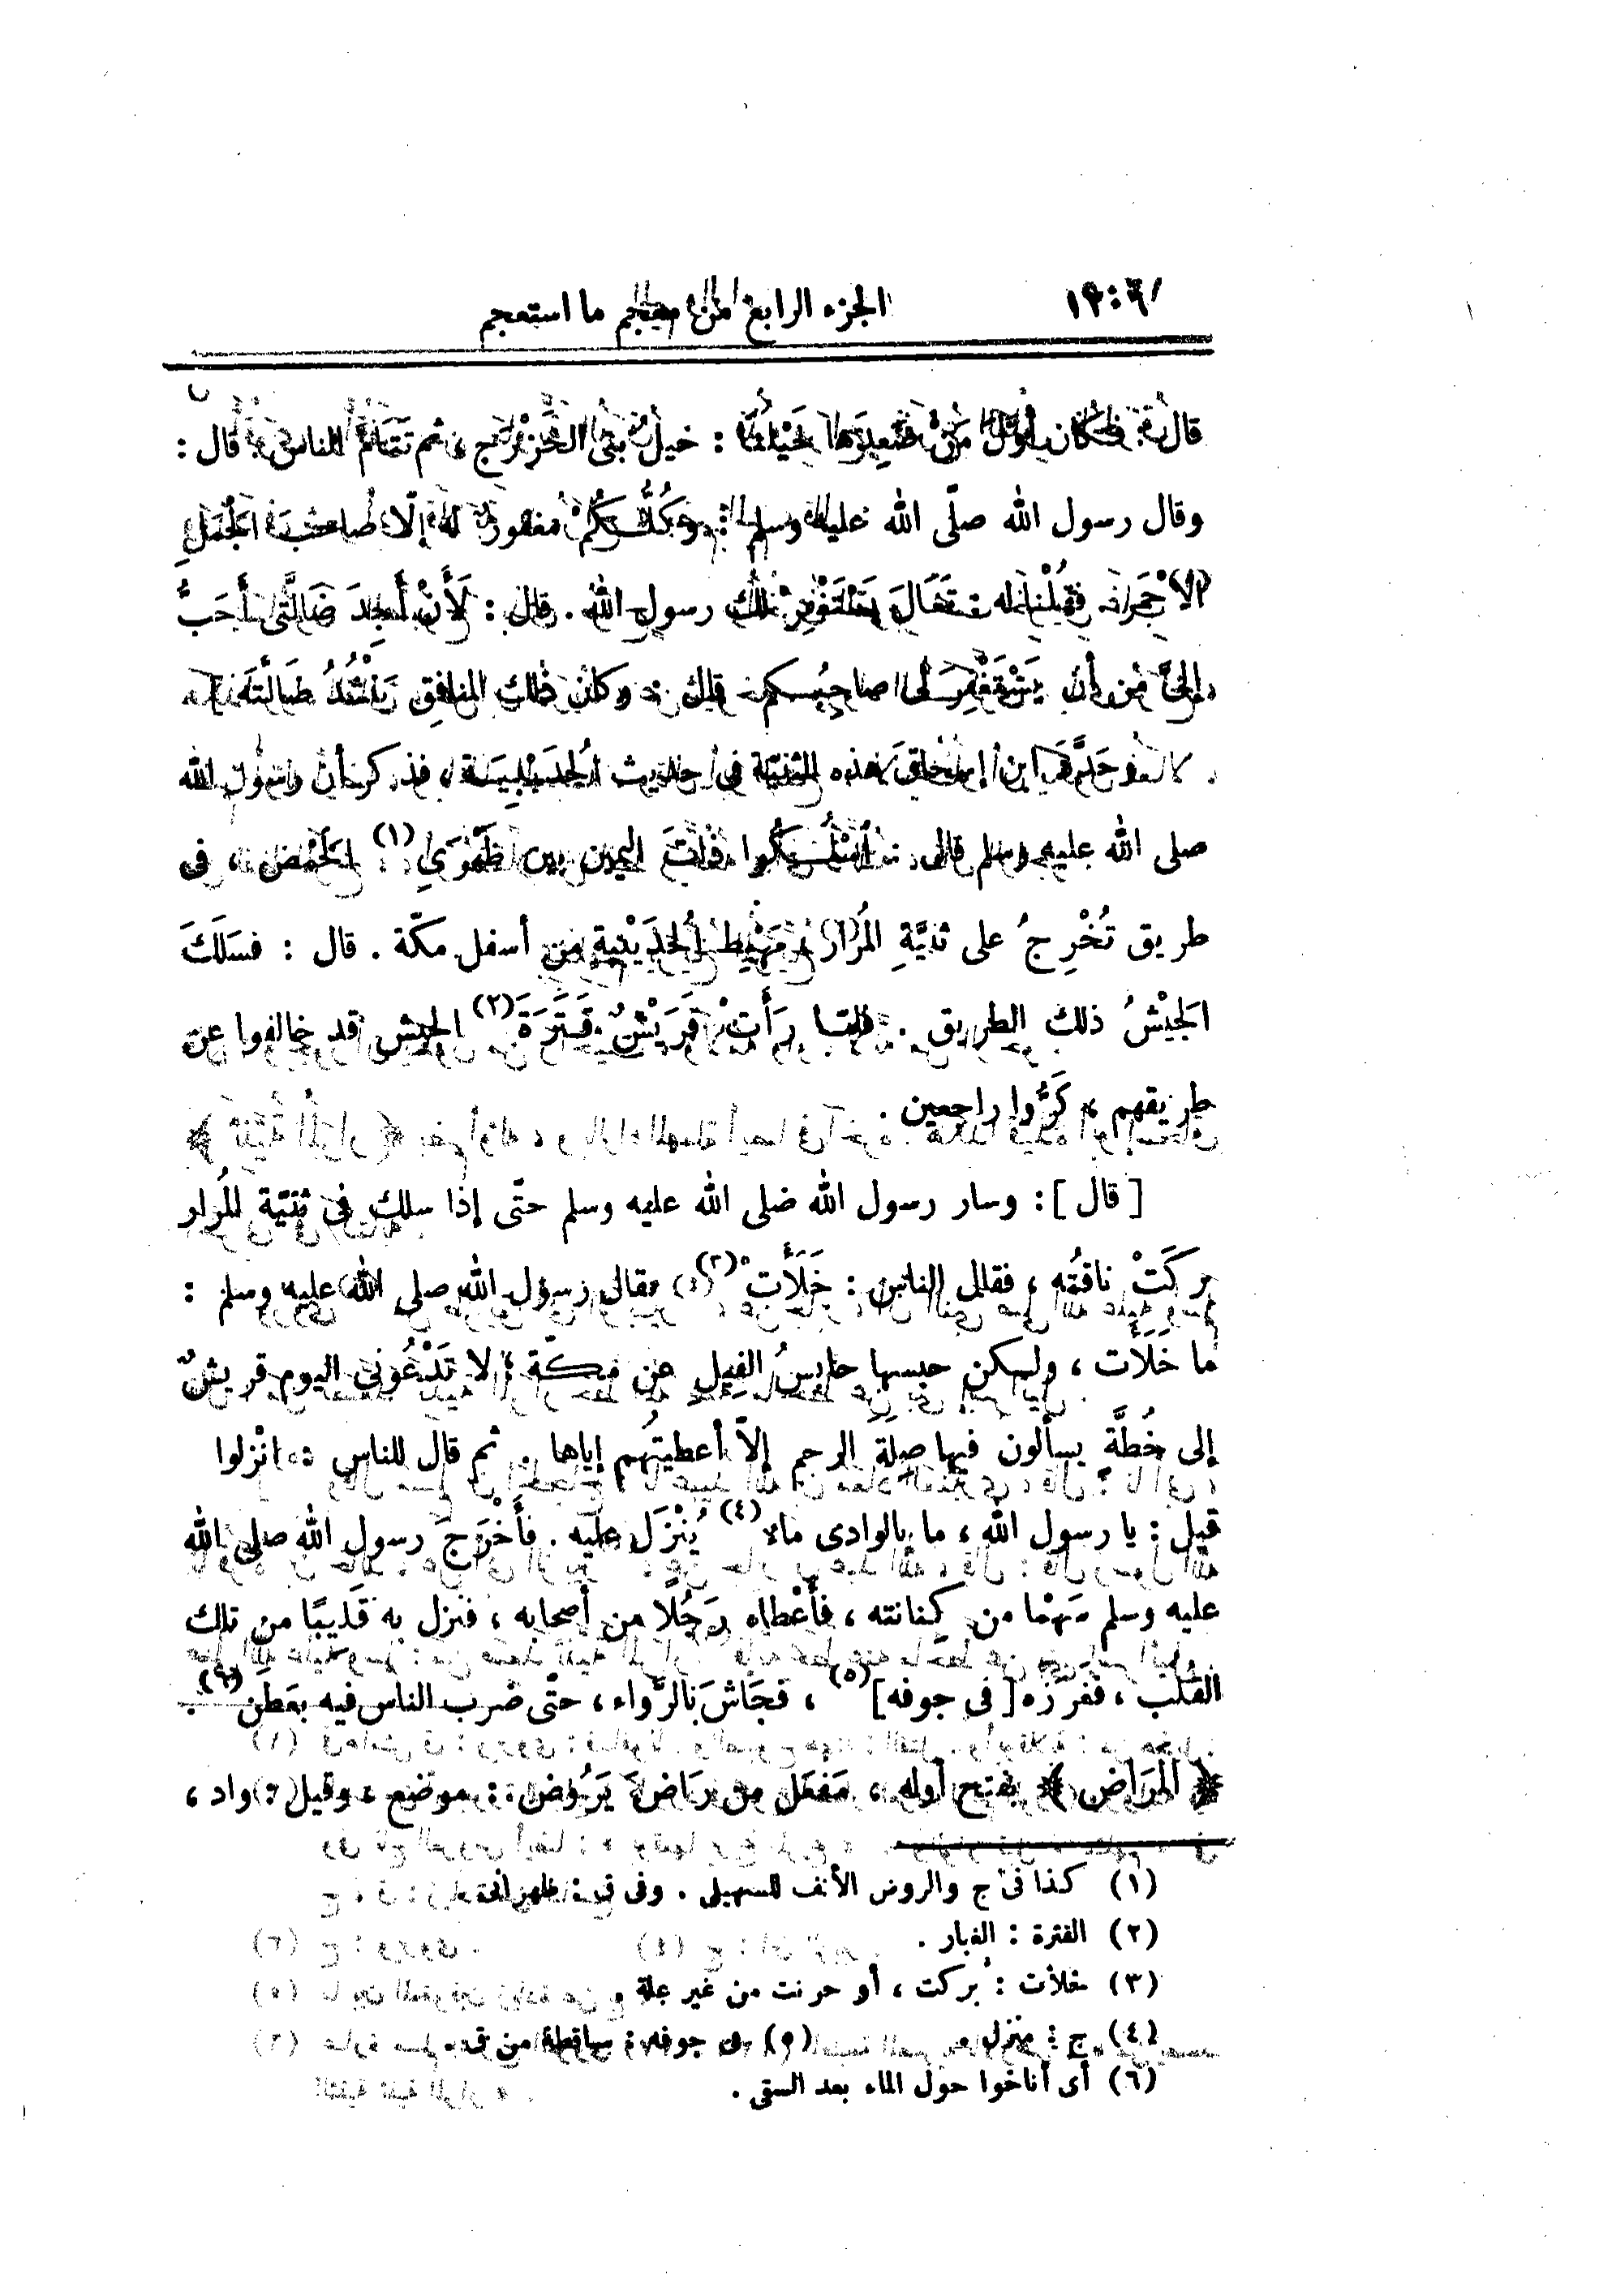 الجزء الرابع من معجم ما استعجم
قال : فكان أوّل مَنْ صَعِدَها خَيْلُنا : خيل بنى الخَزْرَج ، ثم تَتَامَّ الناس . قال :
وقال رسول الله صلّى الله عليه وسلم : وكُلُّكُمْ مغفور له إلّا صاحبَ الجَمَلِ
الأحْمَر . فقُلْنا له : تَعَالَ يَسْتَغْفِرْ لك رسول الله . قال : لَأَنْ أَجِدَ ضَالَّتى أَحَبُّ
إلىَّ من أن يَسْتَغْفِرَ لى صاحبُكم . قال : وكان ذلك المنافق يَنْشُدُ ضَالَّتَه .
ابن إسحاق هذه الثنيّة فى حديث الحُدَيْبِيَة ، فذكر أن رسول الله
صلى الله عليه وسلم قال : اسْلُكوا ذاتَ اليمين بين ظَهْرَىِ (١) الحَمْض ، فى
طريق تُخْرِجُ على ثَنيَّةِ المُرَار ، مَهْبِط الحُدَيْبِية من أسفل مكّة . قال : فسَلَكَ
الجَيْشُ ذلك الطريق . فلما رَأَتْ قُرَيْشٌ قَتَرَةَ (٢) الجيش قد خالفوا عن
طريقهم ، كَرُّوا راجعين .
[ قال ] : وسار رسول الله صلى الله عليه وسلم حتّى إذا سلك فى ثنيّة المُرار
بَرَكَتْ ناقتُه ، فقال الناس : خَلَأَتْ (٣) فقال رسول الله صلى الله عليه وسلم :
ما خَلَأَت ، ولكن حبسها حابِسُ الفِيل عن مكّة ؛ لا تَدْعُونى اليوم قريشٌ
إلى خُطَّةٍ يسألون فيها صِلة الرحم إلاّ أعطيتُهم إياها . ثم قال للناس : انْزلوا
قيل : يا رسول الله ، ما بالوادى ماء (٤) يُنْزَل عليه . فأَخْرَجَ رسول الله صلى الله
عليه وسلم سَهْمًا من كنانته ، فأَعْطاه رَجُلًا من أصحابه ، فنزل به قَليبًا من تلك
القُلُب ، ففرَزَه [ فى جوفه ] (٥) ، فجَاشَ بالرَّواء ، حتّى ضرب الناس فيه بعَطَنٍ (٦) .
﴿ المَرَاض ﴾ بفتح أوله ، مَفعَل من رَاضَ يَرُوض : موضع ، وقيل : واد ،
(١) كذا فى ج والروض الأنف للسهيلى . وفى ق : ظهرانى
(٢) القترة : الغبار .
(٣) خلأت : بركت ، أو حرنت من غير علة .
(٤) ج : منزل . (٥) فى جوفه : ساقطة من ق .
(٦) أى أناخوا حول الماء بعد السقى .